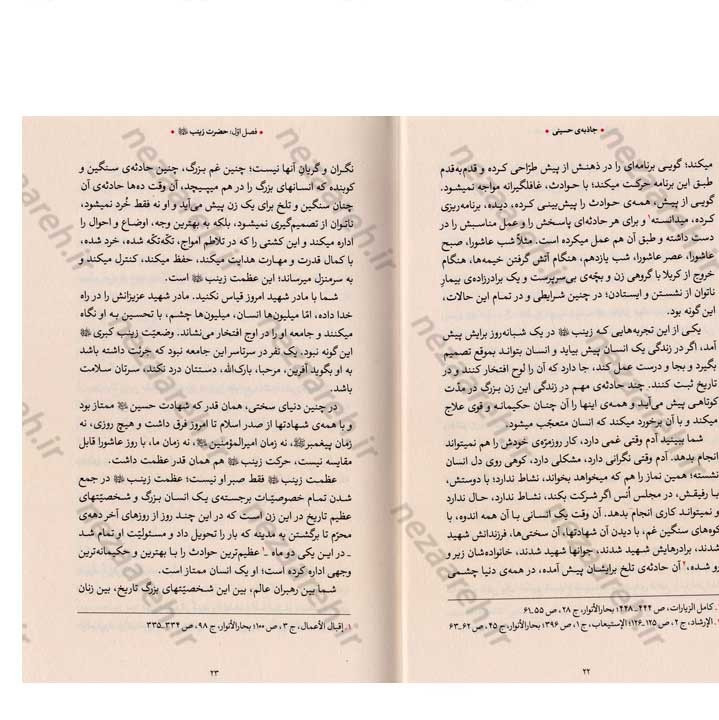 جاذبه‌ی حسینی
میکند؛ گویی برنامه‌ای را در ذهنش از پیش طرّاحی کرده و قدم‌به‌قدم
طبق این برنامه حرکت میکند؛ با حوادث، غافلگیرانه مواجه نمیشود.
گویی از پیش، همه‌ی حوادث را پیش‌بینی کرده، دیده، برنامه‌ریزی
کرده، میدانسته۱ و برای هر حادثه‌ای پاسخش را و عمل مناسبش را در
دست داشته و طبق آن هم عمل میکرده است. مثلاً شب عاشورا، صبح
عاشورا، عصر عاشورا، شب یازدهم، هنگام آتش گرفتن خیمه‌ها، هنگام
خروج از کربلا با گروهی زن و بچّه‌ی بی‌سرپرست و یک برادرزاده‌ی بیمارِ
ناتوان از نشستن و ایستادن؛ در چنین شرایطی و در تمام این حالات،
این گونه بود.
یکی از این تجربه‌هایی که زینب ﷺ در یک شبانه‌روز برایش پیش
آمد، اگر در زندگی یک انسان پیش بیاید و انسان بتواند بموقع تصمیم
بگیرد و بجا و درست عمل کند، جا دارد که آن را لوح افتخار کنند و در
تاریخ ثبت کنند. چند حادثه‌ی مهم در زندگی این زن بزرگ در مدّت
کوتاهی پیش می‌آید و همه‌ی اینها را آن چنان حکیمانه و قوی علاج
میکند و با آن برخورد میکند که انسان متعجّب میشود.
شما ببینید آدم وقتی غمی دارد، کار روزمرّه‌ی خودش را هم نمیتواند
انجام بدهد. آدم وقتی نگرانی دارد، مشکلی دارد، کوهی روی دل انسان
نشسته؛ همین نماز را هم که میخواهد بخواند، نشاط ندارد؛ با دوستش،
با رفیقش، در مجلس اُنس اگر شرکت بکند، نشاط ندارد، حال ندارد
و نمیتواند کاری انجام بدهد. آن وقت یک انسانی با آن همه اندوه، با
کوه‌های سنگین غم، با دیدن آن شهادتها، آن سختی‌ها، فرزندانش شهید
شدند، برادرهایش شهید شدند، جوانها شهید شدند، خانواده‌شان زیر و
رو شده،۲ آن حادثه‌ی تلخ برایشان پیش آمده، در همه‌ی دنیا چشمی
کامل الزیارات، ص ۴۴۴-۴۴۸؛ بحارالأنوار، ج ۲۸، ص ۵۵-۶۱
الإرشاد، ج ۲، ص ۱۲۵-۱۲۶؛ الإستیعاب، ج ۱، ص ۳۹۶؛ بحارالأنوار، ج ۴۵، ص ۶۲-۶۳
۲۲
فصل اوّل: حضرت زینب ﷺ
نگران و گریان آنها نیست؛ چنین غم بزرگ، چنین حادثه‌ی سنگین و
کوبنده که انسانهای بزرگ را در هم میپیچد، آن وقت ده‌ها حادثه‌ی آن
چنان سنگین و تلخ برای یک زن پیش می‌آید و او نه فقط خُرد نمیشود،
ناتوان از تصمیم‌گیری نمیشود، بلکه به بهترین وجه، اوضاع و احوال را
اداره میکند و این کشتی را که در تلاطم امواج، تکّه‌تکّه شده، خرد شده،
با کمال قدرت و مهارت هدایت میکند، حفظ میکند، کنترل میکند و
به سرمنزل میرساند؛ این عظمت زینب ﷺ است.
شما با مادر شهید امروز قیاس نکنید. مادر شهید عزیزانش را در راه
خدا داده، امّا میلیون‌ها انسان، میلیون‌ها چشم، با تحسین به او نگاه
میکنند و جامعه او را در اوج افتخار می‌نشاند. وضعیّت زینب کبری ﷺ
این گونه نبود. یک نفر در سرتاسر این جامعه نبود که جرئت داشته باشد
به او بگوید آفرین، مرحبا، بارک‌الله، دستتان درد نکند، سرتان سلامت
باشد.
در چنین دنیای سختی، همان قدر که شهادت حسین ﷺ ممتاز بود
و با همه‌ی شهادتها از صدر اسلام تا امروز فرق داشت و هیچ روزی، نه
زمان پیغمبر ﷺ، نه زمان امیرالمؤمنین ﷺ، نه زمان ما، با روز عاشورا قابل
مقایسه نیست، حرکت زینب ﷺ هم همان قدر عظمت داشت.
عظمت زینب ﷺ فقط صبر او نیست؛ عظمت زینب ﷺ در جمع
شدن تمام خصوصیّات برجسته‌ی یک انسان بزرگ و شخصیّتهای
عظیم تاریخ در این زن است که در این چند روز از روزهای آخر دهه‌ی
محرّم تا برگشتن به مدینه که بار را تحویل داد و مسئولیّت او تمام شد
ـ در این یکی دو ماه ـ۱ عظیم‌ترین حوادث را با بهترین و حکیمانه‌ترین
وجهی اداره کرده است؛ او یک انسان ممتاز است.
شما بین رهبران عالم، بین این شخصیّتهای بزرگ تاریخ، بین زنان
۱. إقبال الأعمال، ج ۳، ص ۱۰۰؛ بحارالأنوار، ج ۹۸، ص ۳۳۴-۳۳۵
۲۳
nezaareh.ir